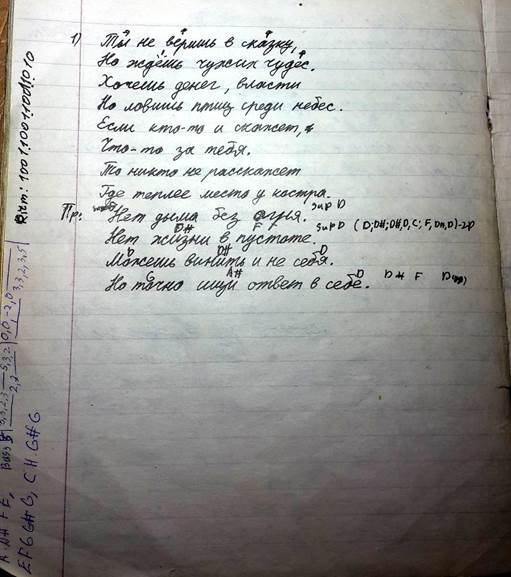 1) Ты не веришь в сказку,
Но ждёшь чужих чудес.
Хочешь денег, власти
Но ловишь птиц среди небес.
Если кто-то и скажет,
Что-то за тебя.
То никто не расскажет
Где теплее место у костра.
Пр: Нет дыма без огня. sup D
D# F F sup D
Нет жизни в пустоте.
D D# D
Можешь винить и не себя.
G A# D D# F
Но точно ищи ответ в себе.
Ritm: 1001.1001.
EFGG#G, CHG#G